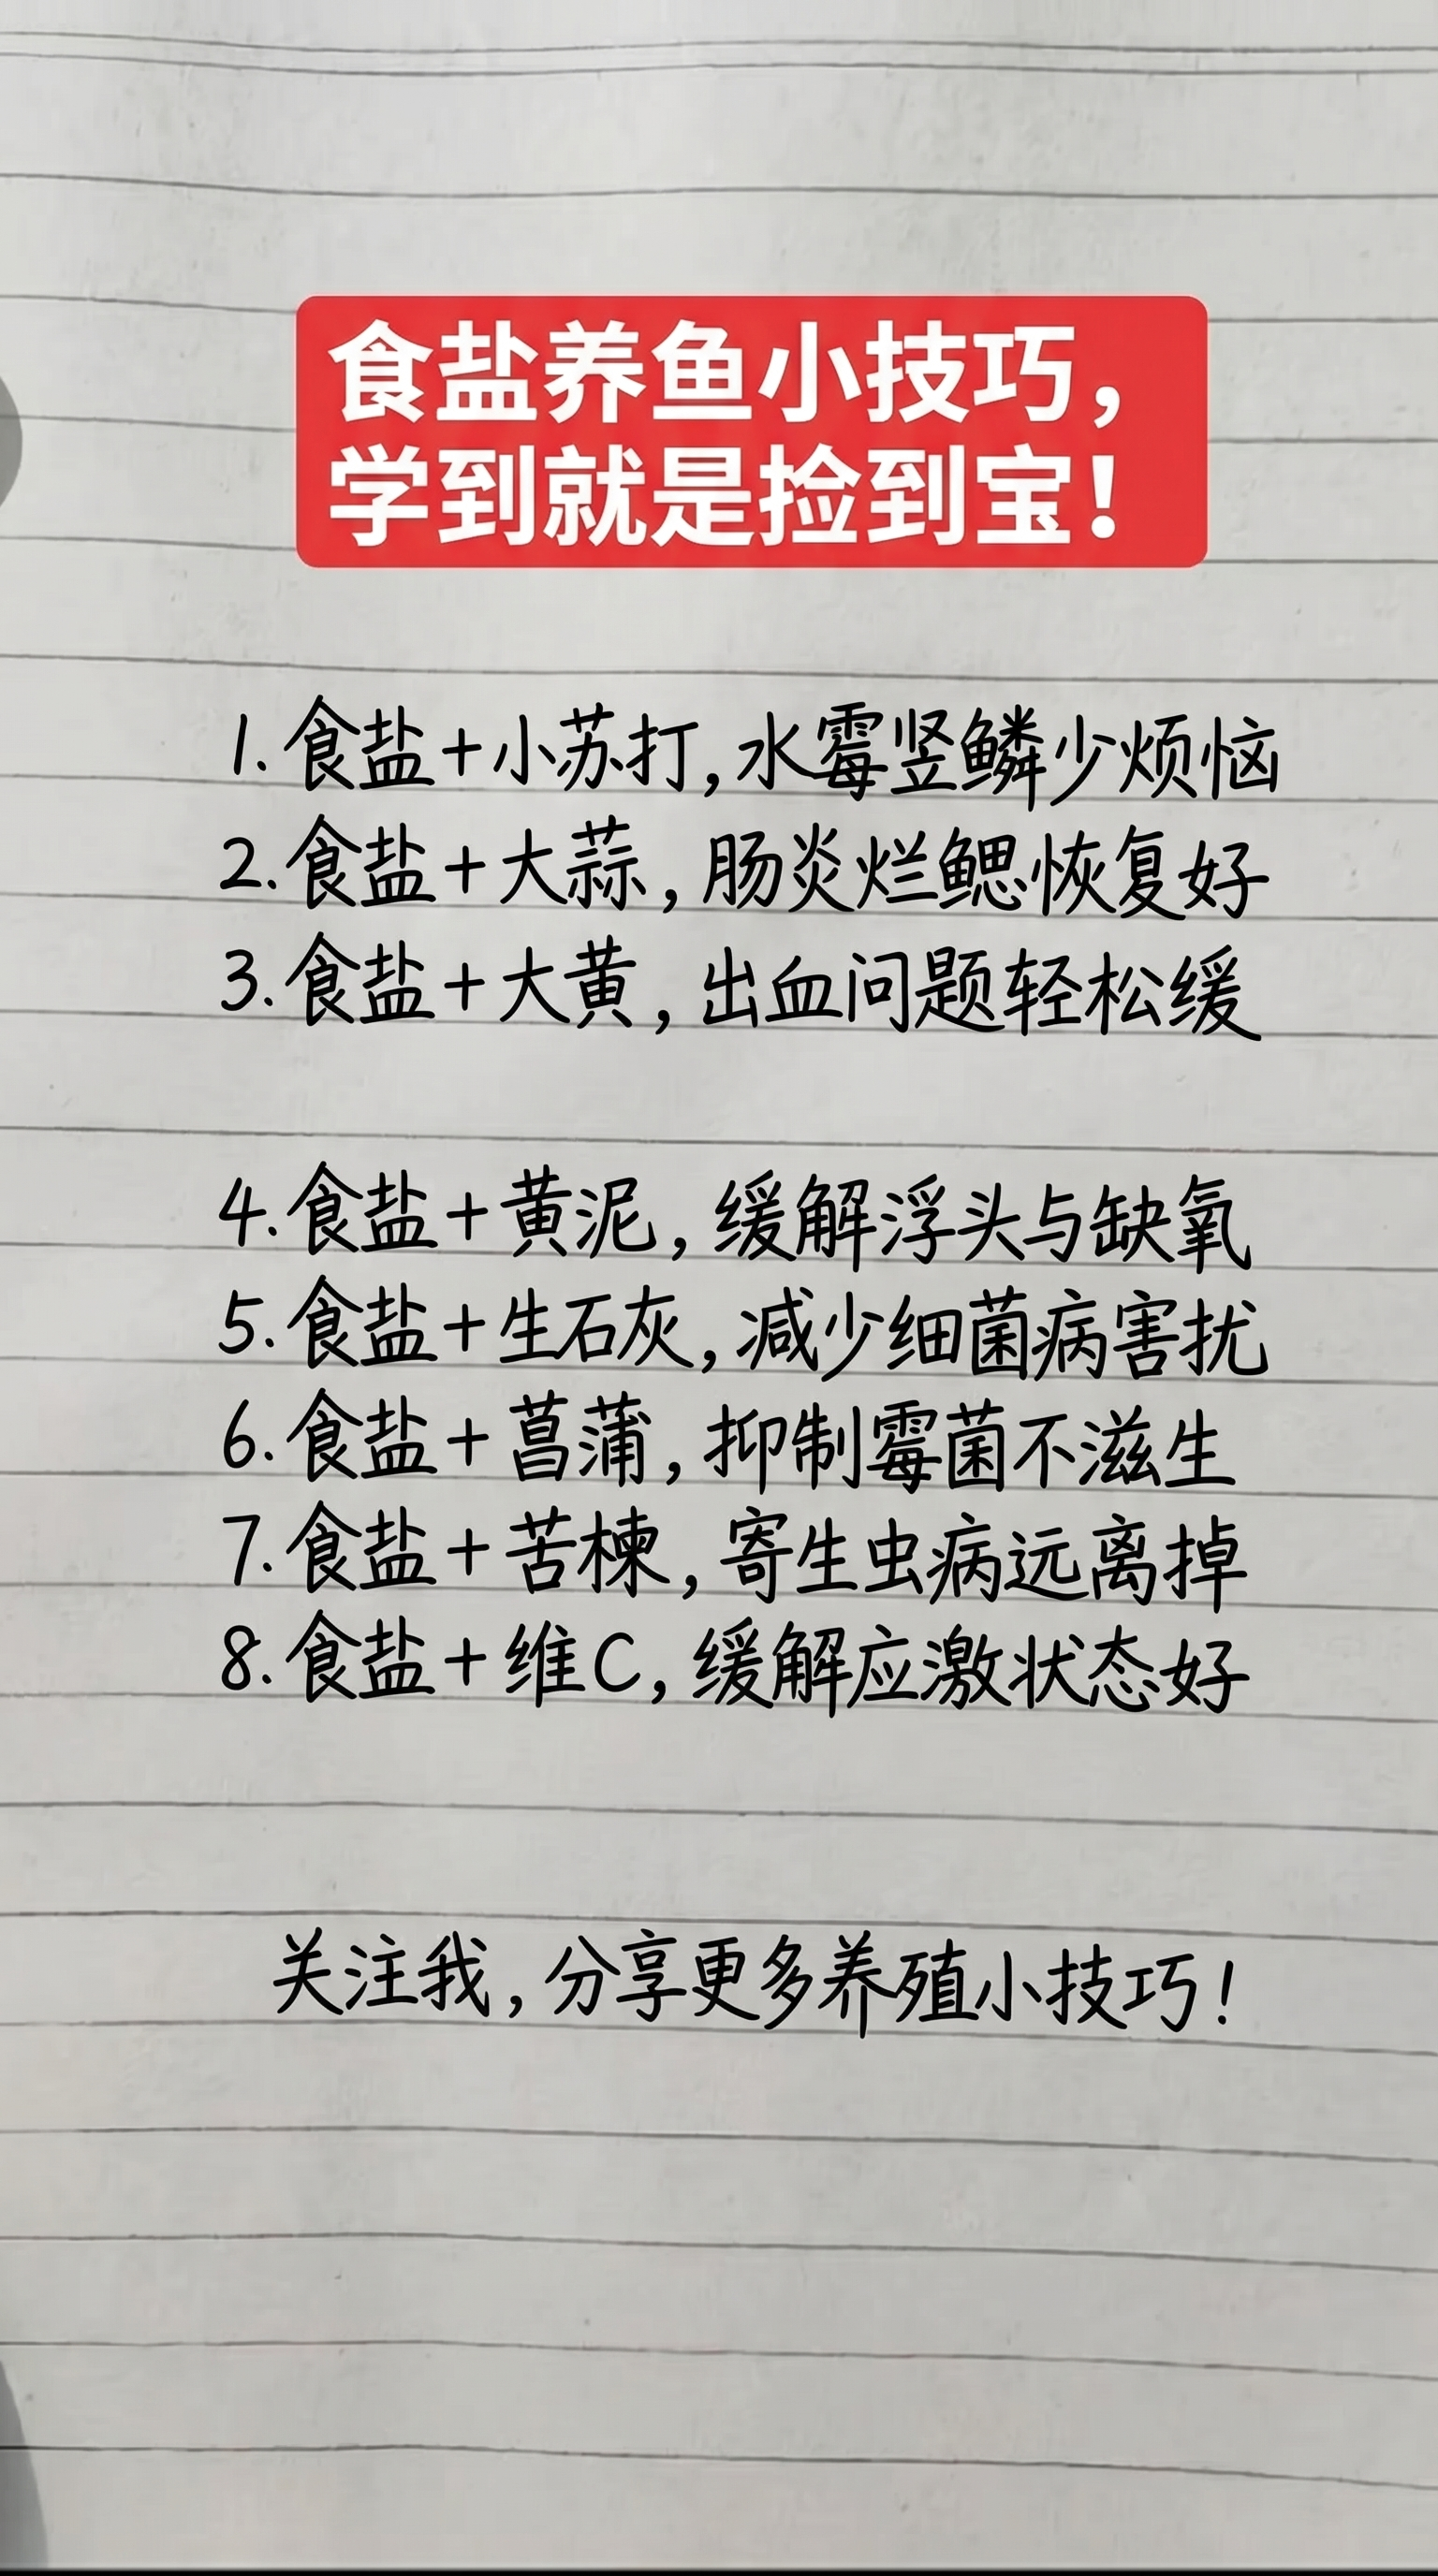 食盐养鱼小技巧，
学到就是捡到宝！
1.食盐+小苏打，水霉竖鳞少烦恼
2.食盐+大蒜，肠炎烂鳃恢复好
3.食盐+大黄，出血问题轻松缓
4.食盐+黄泥，缓解浮头与缺氧
5.食盐+生石灰，减少细菌病害扰
6.食盐+菖蒲，抑制霉菌不滋生
7.食盐+苦楝，寄生虫病远离掉
8.食盐+维C，缓解应激状态好
关注我，分享更多养殖小技巧！